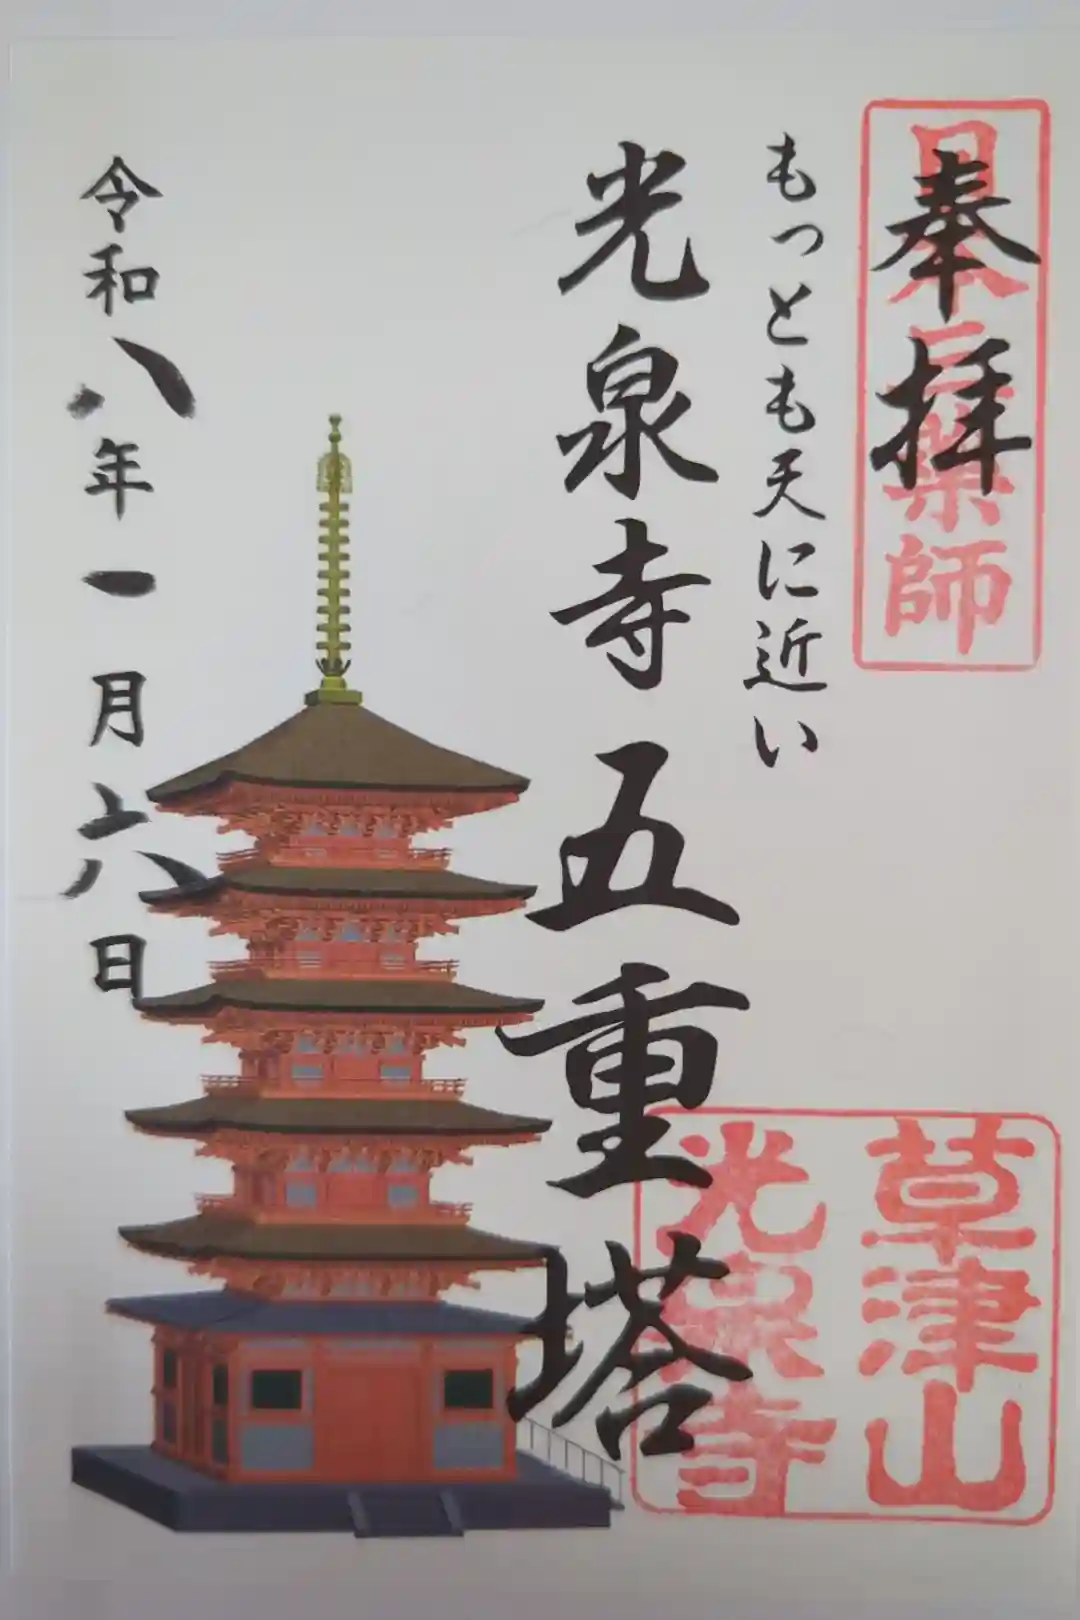 奉拝
日本三薬師
もっとも天に近い
光泉寺五重塔
令和八年一月六日
草津山
光泉寺